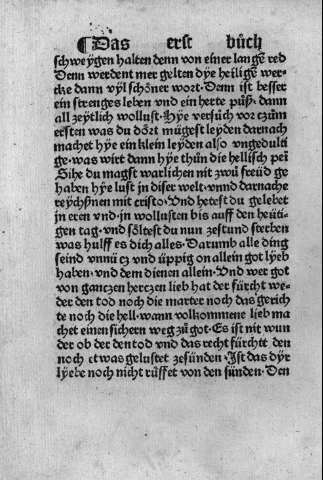 ¶Das erst bůch
schweygen halten denn von einer langē red
Denn werdent mer gelten dÿe heiligē wer-
cke dann vÿl schöner wort· Denn ist besser
ein strenges leben vnd ein herte půß· dann
all zeytlich wollust· Hÿe versůch vor czům
ersten was du dört mügest leyden darnach
machet hÿe ein klein leyden also vngedulti
ge· was wirt dann hÿe thůn die hellisch pei
Sihe du magst warlichen nit zwů freüd ge
haben hÿe lust in diser welt· vnnd darnach
reÿchßnen mit cristo· Vnd hetest du gelebet
in eren vnd· in wollusten bis auff den heüti-
gen tag· vnd söltest du nun zestund sterben
was hulff es dich alles· Darumb alle ding
seind vnnütz vnd üppig on allein got lÿeb
haben· vnd dem dienen allein· Vnd wer got
von ganczen herczen lieb hat der fürcht we-
der den tod noch die marter noch das gerich
te noch die hell· wann volkommene lieb ma
chet einen sichern weg zů got· Es ist nit wun
der ob der den tod vnd das recht fürchtt den
noch etwas gelustet zesünden· Ist das dÿr
lÿebe noch nicht růffet von den sünden· Den